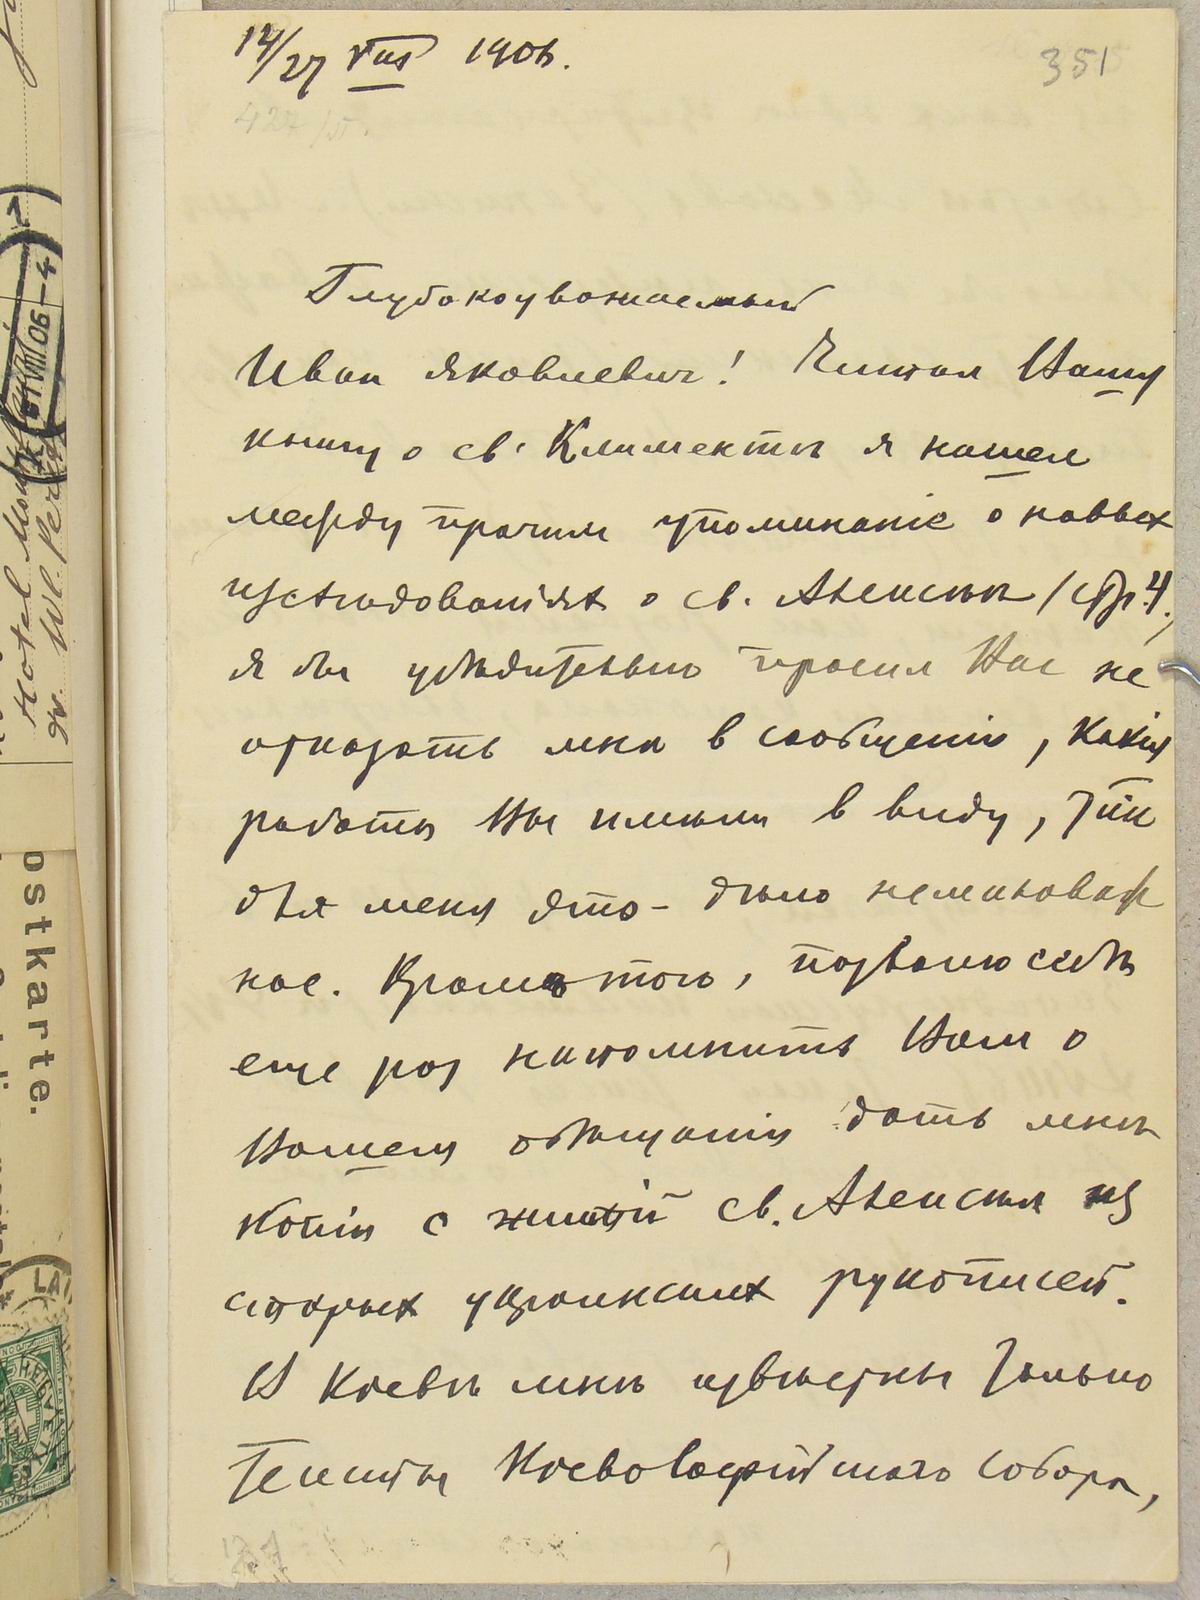 14/27 VIII 1906.
351
427/
Глубокоуважаемый
Иван Яковлевич! Читая Вашу
книгу о св. Клименте я нашел
между прочим упоминаніе о новых
изслѣдованіях о св. Алексѣѣ /стр. 4/,
я бы убѣдительно просил Вас не
отказать мнѣ в сообщеніи, какія
работы Вы имѣли в виду, так как
для меня это – дѣло немаловаж
ное. Кромѣ того, позволю себѣ
еще раз напомнить Вам о
Вашем обѣщаніи дать мнѣ
копіи с житій св. Алексѣя из
старых украинских рукописей.
В Кіевѣ мнѣ извѣстны только
тексты Кіево-Софійскаго собора,
Hotel
ostkarte.
VIII 06-4